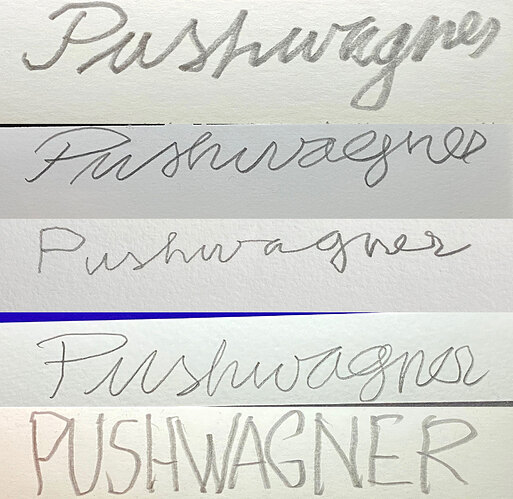 Pushwagner
Pushwagner
Pushwagner
Pushwagner
PUSHWAGNER